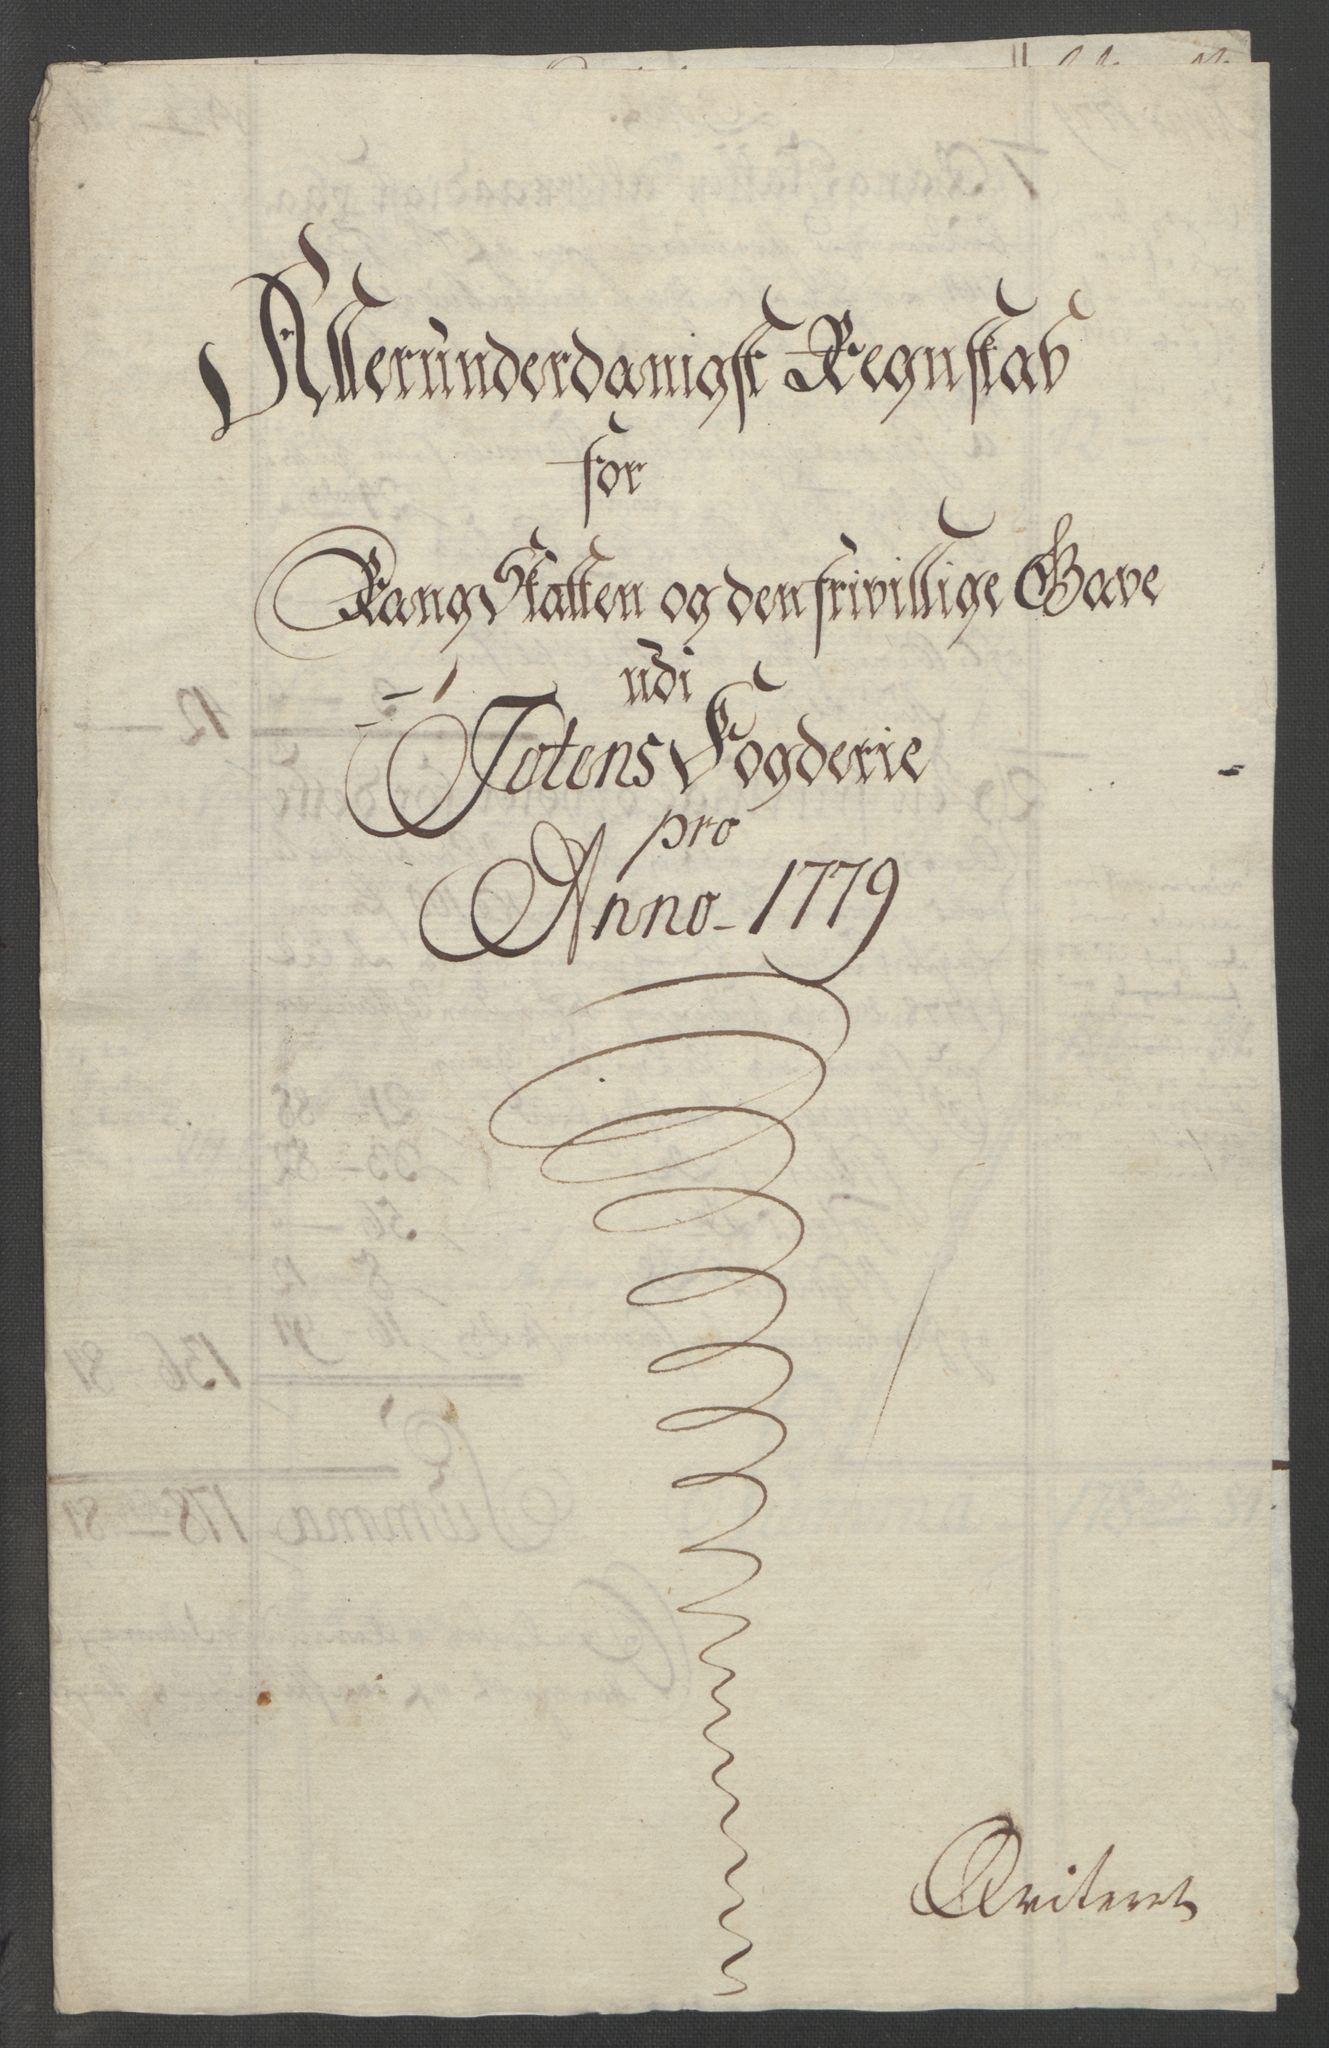 Allerunderdanigst Regnskab
for
Rang Skatten og den frivillige Gave
udi
Totens Fogderie
pro
Anno 1779
Qviteret